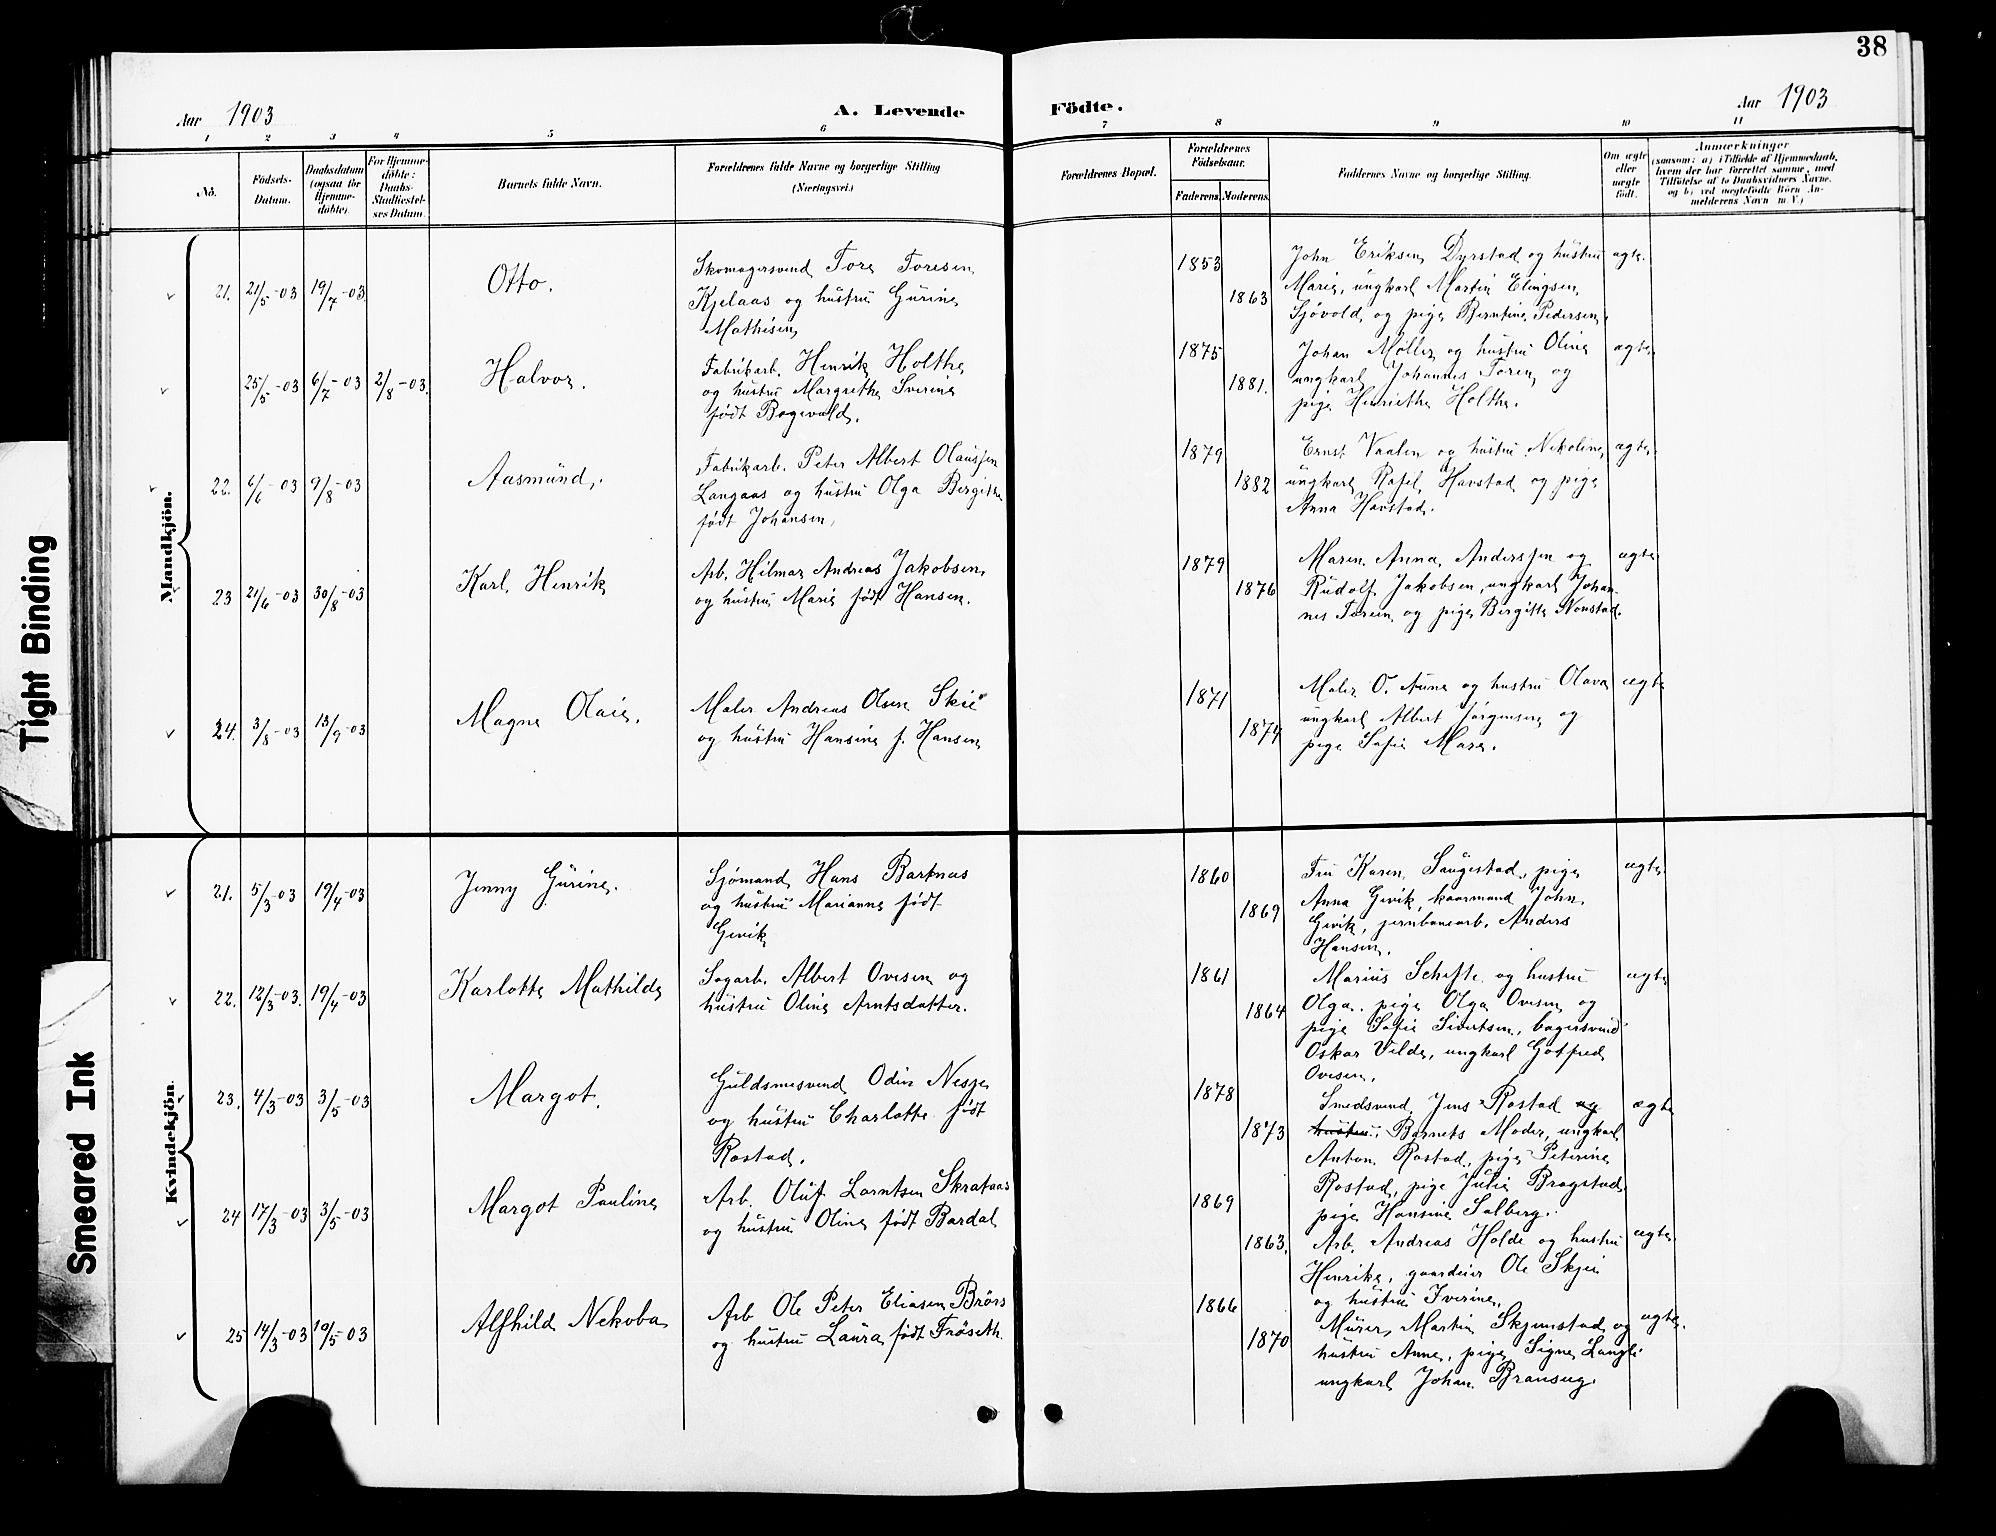 38
Aar 1903
A. Levende
Födte.
Aar 1903
1 2 3 4 5 6 7 8 9 10 11
No.
Födsels-
Datum.
Daabsdatum
(ogsaa for
Hjemme-
döbte).
For Hjemme-
döbte:
Daabs-
Stadfæstel-
ses Datum.
Barnets fulde Navn.
Forældrenes fulde Navne og borgerlige Stilling
(Næringsvei.)
Forældrenes Bopæl.
Forældrenes
Födselsaar.
Faderens. Moderens.
Faddernes Navne og borgerlige Stilling.
Om ægte
eller
uægte
födt.
Anmærkninger
(saasom: a) i Tilfælde af Hjemmedaab,
hvem der har forrettet samme, med
Tilföielse af to Daabsvidners Navne.
og b) ved uægtefödte Börn An-
melderens Navn m. V.)
Mandkjön.
21. 21/5-03 19/7-03 Otto.
Skomagersvend Tore Toresen
Kjelaas og hustru Gurine
Mathisen
1853 1863
John Eriksen Dyrstad og hustru
Marie, ungkarl Martin Elingsen
Sjövold og pige Berntine Pedersen.
ægte.
25/5-03 6/7-03 2/8-03. Halvor.
Fabrikarb. Henrik Holthe
og hustru Margrethe Sverine
født Bogevald.
1875 1881.
Johan Møller og hustru Oline
ungkarl Johannes Toren og
pige Henriette Holthe.
ægte
22. 6/6-03 9/8-03 Aasmund.
Fabrikarb. Peter Albert Olaussen
Langaas og hustru Olga Bergitte
født Johansen,
1879 1882
Ernst Vaalen og hustru Nekoline
ungkarl Rafel Havstad og pige
Anna Havstad.
ægte
23 21/6-03 30/8-03 Karl Henrik
Arb. Hilmar Andreas Jakobsen
og hustru Marie født Hansen.
1879 1876
Maren Anna Anderssen og
Rudolf Jakobsen, ungkarl Johan-
nes Toren og pige Bergitte Nonstad.
ægte
24. 3/8-03 13/9-03 Magne Olaie.
Maler Andreas Olsen Skei
og hustru Hansine f. Hansen
1871 1874
Maler O. Aune og hustru Olava
ungkarl Albert Jørgensen og
pige Sofie Mare.
ægte
Kvindekjön.
21. 5/3-03 19/4-03 Jenny Gurine.
Sjømand Hans Bartnas
og hustru Marianne født
Gevik
1860 1869
Fru Karen Saugestad, pige
Anna Gevik, kaarmand John
Gevik, jernbanearb. Anders
Hansen.
ægte
22. 12/3-03. 19/4-03 Karlotte Mathilde
Sagarb. Albert Ovesen og
hustru Oline Arntsdatter.
1861 1864
Marius Schefte og hustru
Olga, pige Olga Ovesen og
pige Sofie Sivertsen, bagersvend
Oskar Vilde, ungkarl Gotfred
Ovesen.
ægte
23. 4/3-03 3/5-03 Margot.
Guldsmesvend Odin Nesge
og hustru Charlotte født
Rostad.
1878 1873
Smedsvend Jens Rostad og
hustru, Barnets Moder, ungkarl
Anton Rostad, pige Peterine
Rostad, pige Julie Bragstad,
pige Hansine Salberg.
ægte
24 17/3-03 3/5-03 Margot Pauline
Arb. Oluf Larntsen Skrataas
og hustru Oline født Bardal
1869 1863.
Arb. Andreas Holde og hustru
Henrike, gaardeier Ole Skjei
og hustru Iverine.
ægte
25 14/3-03 10/5-03 Alfhild Nekoba
Arb Ole Peter Eliasen Brörs
og hustru Laura født Fröseth.
1866 1870
Murer Martin Skjemstad og
hustru Anne, pige Signe Langli
ungkarl Johan Bransug.
ægte.
Tight Binding
Smeared Ink